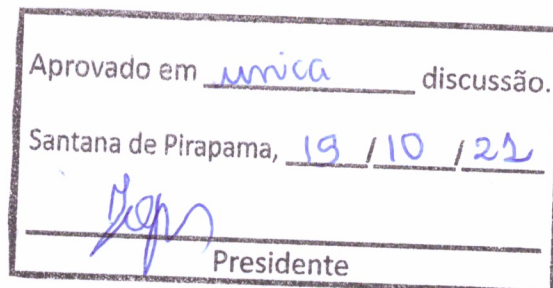 Aprovado em unica discussão.
Santana de Pirapama, 19 / 10 / 21
Presidente